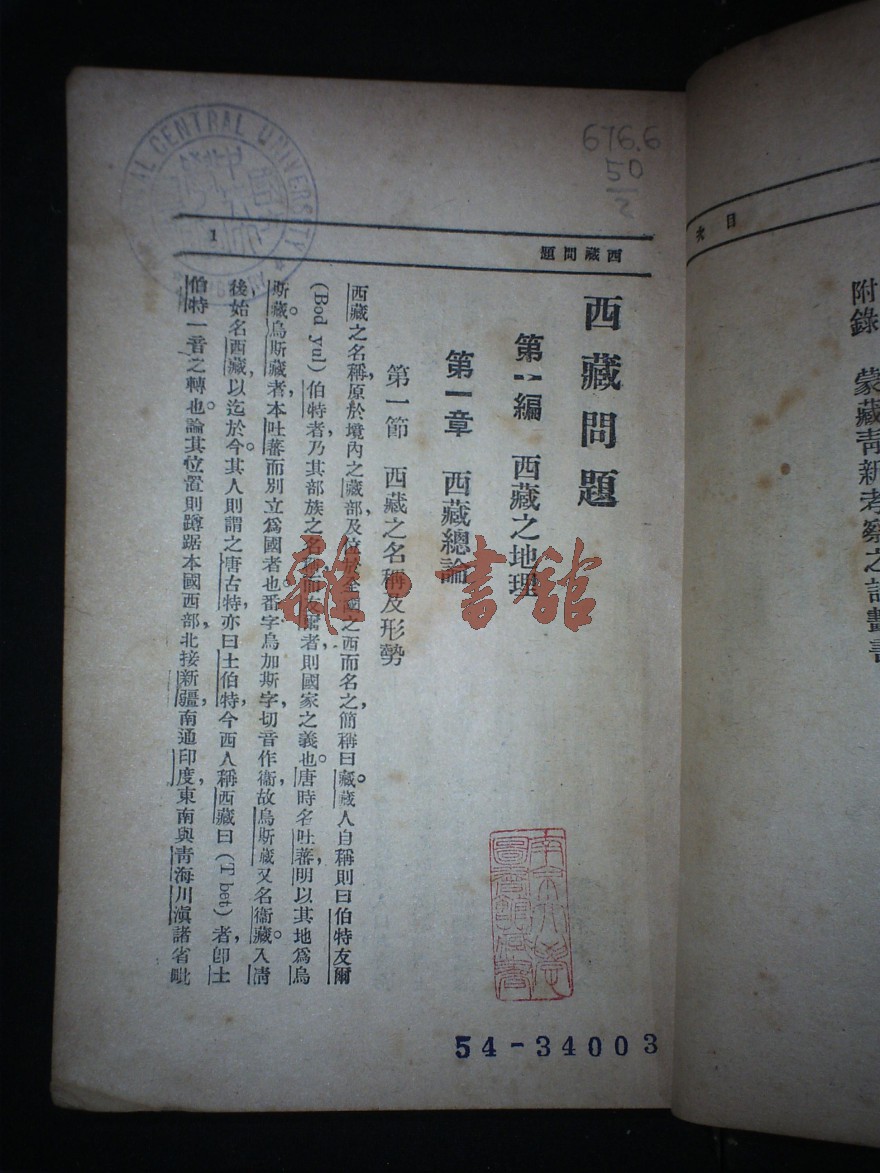 目次
附錄 蒙藏青新考察之計劃書
676.6
50
2
NATIONAL CENTRAL UNIVERSITY
西藏問題
1
西藏問題
第一編 西藏之地理
第一章 西藏總論
第一節 西藏之名稱及形勢
西藏之名稱,原於境內之藏部,及位於全國之西而名之,簡稱曰藏。藏人自稱則曰伯特友爾
(Bod yul)伯特者,乃其部族之名稱,而友爾者,則國家之義也。唐時名吐蕃,明以其地爲烏
斯藏。烏斯藏者,本吐蕃而別立爲國者也。番字烏加斯字,切音作衞,故烏斯藏又名衞藏。入淸
後,始名西藏,以迄於今。其人則謂之唐古特,亦曰土伯特,今西人稱西藏曰(T bet)者,卽土
伯特一音之轉也。論其位置,則蹲踞本國西部,北接新疆,南通印度,東南與靑海川滇諸省毗
雜·書館
南京大學
圖書館
54-34003